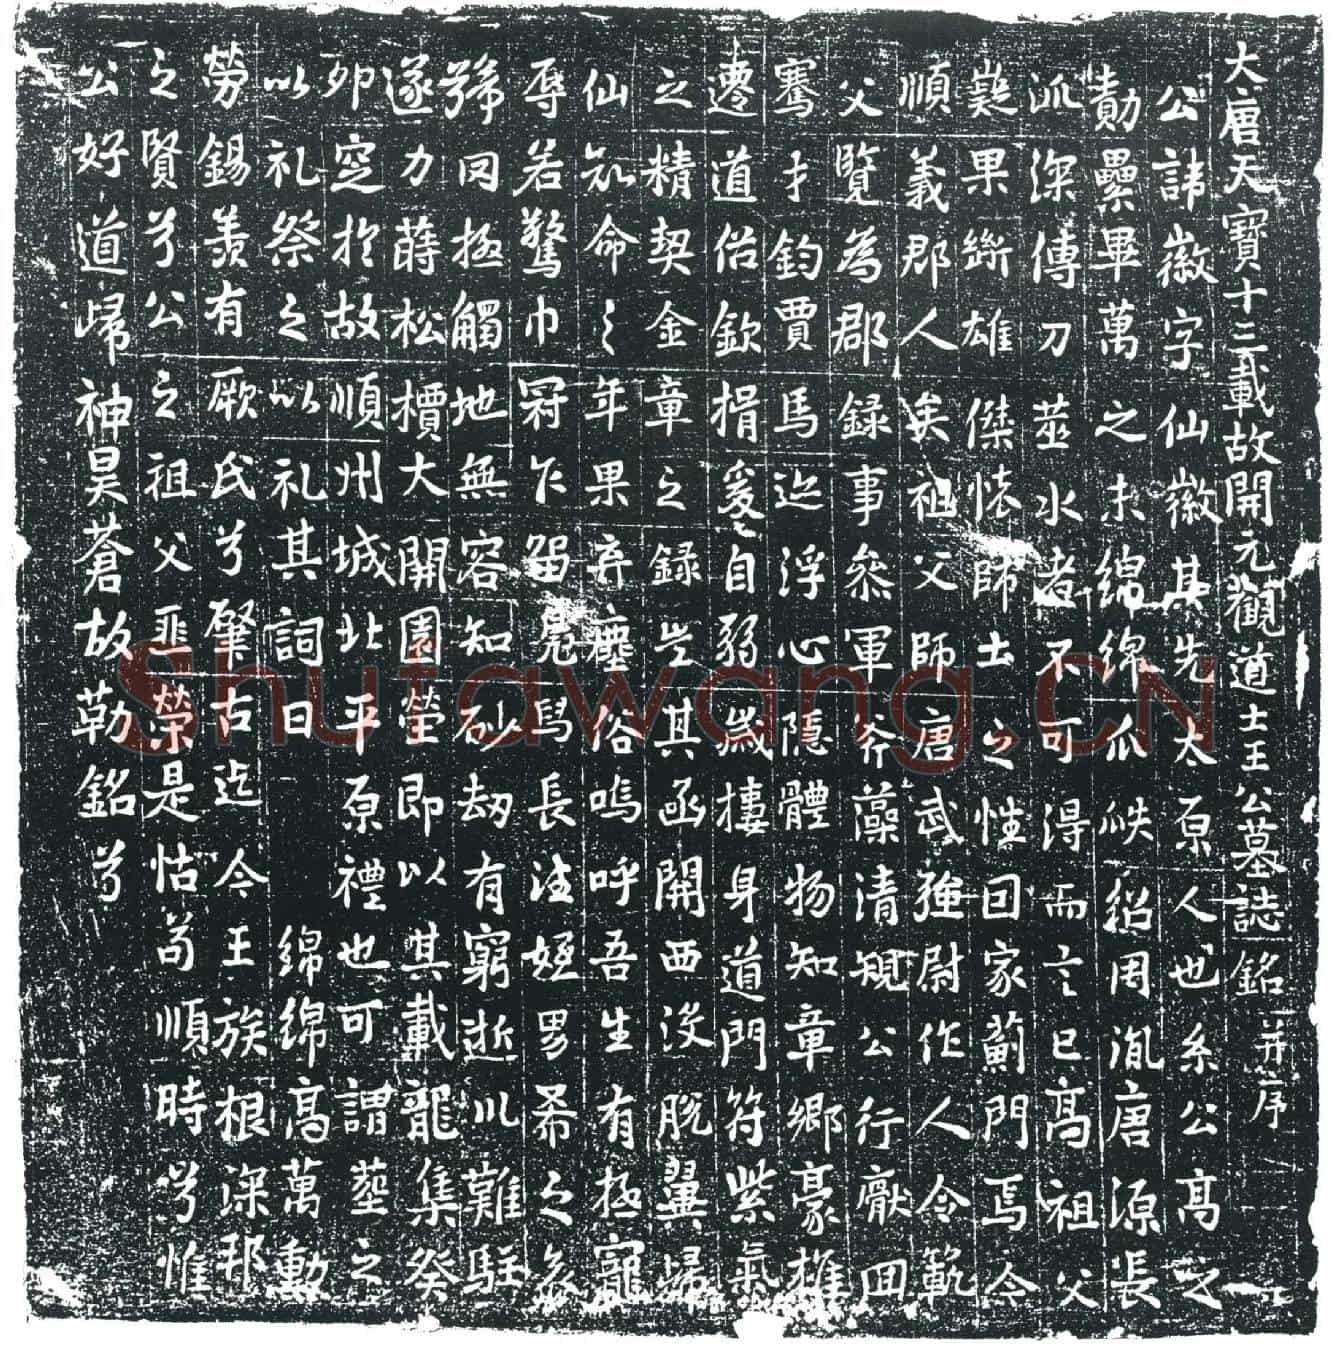 大唐天寶十三載故開元觀道士王公墓誌銘并序
公諱徽字仙徽其先太原人也系公高之
勳纍畢萬之未綿綿瓜瓞紹周胤唐源長
派深傳刀莅水者不可得而言已高祖父
嶷果斷雄傑懷師土之性因家薊門焉今
順義郡人矣祖父師唐武強尉作人令範
父覽為郡錄事參軍斧藻清規公行
騫才鈞賈馬迩浮心隱體物知章鄉豪雄
道俗欽揖爰自弱歲摟身道門符紫氣
之精契金章之錄豈其亟開西没脫翼歸
仙知命之年果弃塵俗嗚呼吾生有極寵
辱若驚巾冠乍留鳧舄長注姪男希之哀
號罔極觸地無容知砂劫有窮逝川難駐
遂力蒔松檟大開園塋即以其載龍集癸
夘窆於故順州城北平原禮也可謂塟之
以礼祭之以礼其詞曰 綿綿高萬勳
勞錫羨有厥氏兮肇古迄今王族根深邦
之賢兮公之祖父匪榮是怙苟順時兮惟
公好道歸神昊蒼故勒銘兮
Shufawang.CN